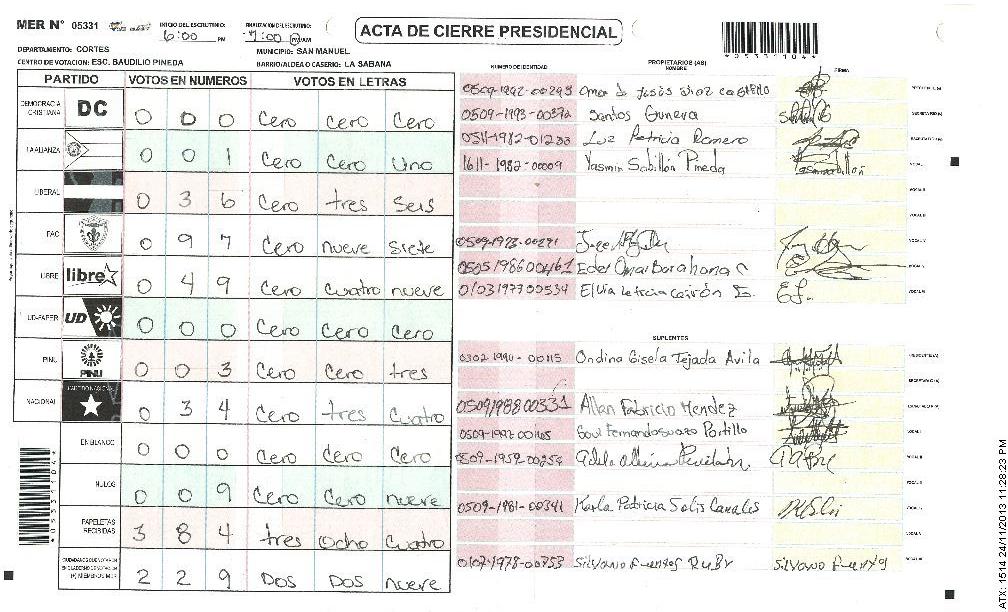 MER N° 05331
INICIO DEL ESCRUTINIO: 6:00 PM
FINALIZACION DEL ESCRUTINIO: 7:00 PM/AM
ACTA DE CIERRE PRESIDENCIAL
*05331104*
DEPARTAMENTO: CORTES
MUNICIPIO: SAN MANUEL
CENTRO DE VOTACION: ESC. BAUDILIO PINEDA
BARRIO/ALDEA O CASERIO: LA SABANA
PARTIDO VOTOS EN NUMEROS VOTOS EN LETRAS
DEMOCRACIA CRISTIANA DC 0 0 0 Cero Cero Cero
LA ALIANZA 0 0 1 Cero Cero Uno
LIBERAL 0 3 6 Cero tres Seis
FAC 0 9 7 Cero nueve Siete
LIBRE libre 0 4 9 Cero Cuatro nueve
UD-FAPER UD 0 0 0 Cero Cero Cero
PINU PINU 0 0 3 Cero Cero tres
NACIONAL PARTIDO NACIONAL 0 3 4 Cero tres Cuatro
EN BLANCO 0 0 0 Cero Cero Cero
NULOS 0 0 9 Cero Cero nueve
PAPELETAS RECIBIDAS 3 8 4 tres Ocho Cuatro
CIUDADANOS QUE VOTARON EN CUADERNO DE VOTACION (+) MIEMBROS MER 2 2 9 Dos Dos nueve
*05331104*
NUMERO DE IDENTIDAD PROPIETARIOS (AS) NOMBRE FIRMA
0509-1992-00293 Omar de Jesús
0509-1993-00372 Santos Gunera
0511-1982-01200 Luz Patricia Romero
1611-1982-00009 Yasmin Sabillón Pineda
VOCAL I
VOCAL II
VOCAL III
0509-1973-00271
0505198600461 Eder Omar Barahona C
0103197700534 Elvia Leticia E.
SUPLENTES
0302-1990-00115 Ondina Gisela Tejada Avila
0509198800331 Allan Fabricio Mendez
0509-1992-00165 Portillo
0509-1959-00254
0509-1981-00341 Karla Patricia Solis Canales
0107-1978-00753 Silvano Fuentes Ruby Silvano Fuentes
ATX: 1514 24/11/2013 11:28:23 PM